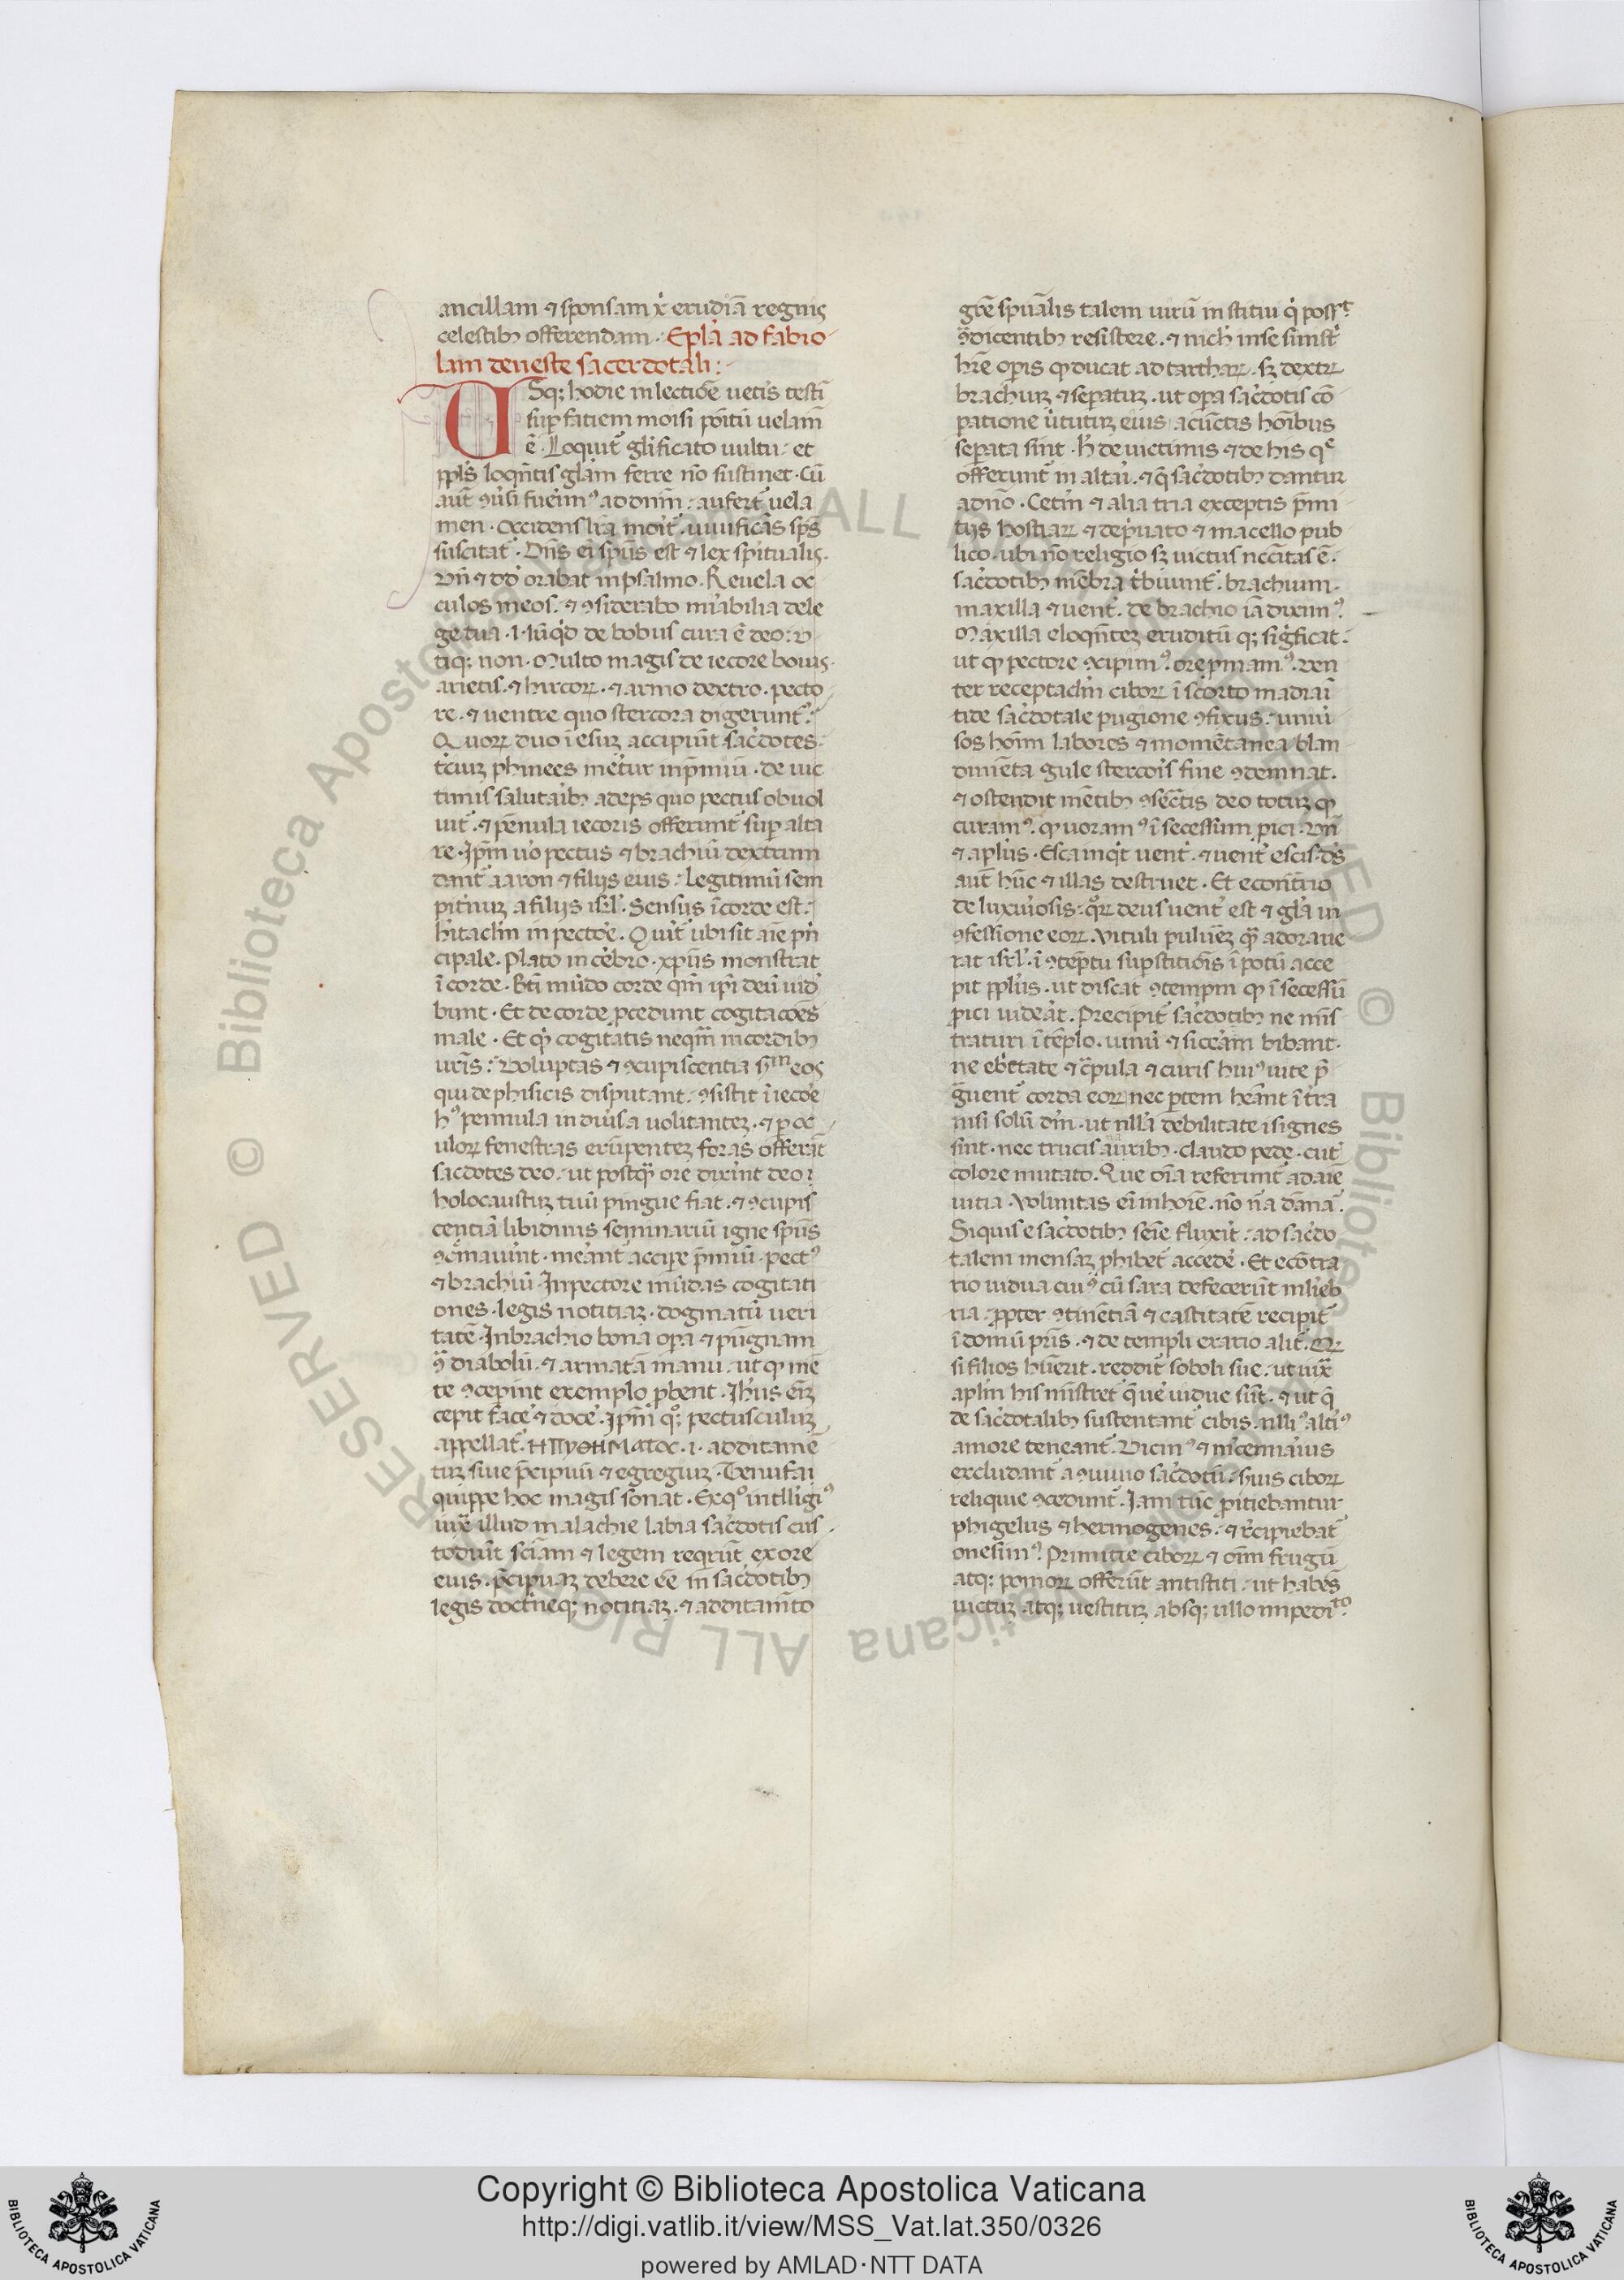 ancillam ⁊ sponsam xp̄i erudiā regnis
celestibꝫ offerendam. Ep̄la ad fabio
lam de ueste sacerdotali:
USqꝫ hodie in lectiōe uetis testī
sup faciem moisi poītū uelam̄
ē. Loquit᷑ gl̄ificato uultu. et
ppl̄s loqn̄tis gl̄am ferre nō sustinet. Cū
aut̄ ꝯuersi fuerim᷒ ad dnm̄. aufert᷑ uela
men. Occidens lr̄a morit᷑. uiuificās sp̄s
suscitat᷑. Dn̄s ei sp̄us est ⁊ lex spiritualis.
Vn̄ ⁊ dd̄ orabat in psalmo. Reuela oc
culos meos. ⁊ ꝯsiderabo mirabilia de le
ge tua .i. nūqd̄ de bobus cura ē deo. v
tiqꝫ non. Multo magis de iecore bouis.
arietis. ⁊ hircoꝝ. ⁊ armo dextro. pecto
re. ⁊ uentre quo stercora digerunt᷑.
Quoꝝ duo ī esuꝫ accipiūt sac̄dotes.
t̄ciuꝫ phinees meretur in p̄miū. de uic
timis salutaribꝫ adeps quo pectus obuol
uit᷑. ⁊ pēnula iecoris offerunt᷑ sup alta
re. Ipm̄ uo pectus ⁊ brachiū dextrum
dant᷑ aaron ⁊ filijs eius. legitimū sem
piternuꝫ a filijs isrl̄. Sensus ī corde est.
hitaclm̄ in pectore. Querit᷑ ubi sit aīe prin
cipale. Plato in cerebro. xp̄us monstrat
ī corde. Bt̄i mūdo corde qm̄ ipī deū uide
bunt. Et de corde pcedunt cogitacōes
male. Et qd̄ cogitatis neqm̄ in cordibꝫ
uris. Voluptas ⁊ ꝯcupiscentia s̄m eos
qui de phisicis disputant. ꝯsistit ī iecore
h᷒ pennula in diuersa uolitanteꝫ. ⁊ p oc
uloꝝ fenestras erūpenteꝫ foras offerūt
sacdotes deo. ut postqꝫ ore dixerint deo
holocaustuꝫ tuū pingue fiat. ⁊ ꝯcupis
centiā libidinis seminariū igne sp̄us
ꝯcremauerint. mereant᷑ accipe p̄miū. pect᷒
⁊ brachiū. In pectore mūdas cogitati
ones. legis notitiaꝫ. dogmatū ueri
tatē. In brachio bona opa ⁊ pūgnam
ꝯ diabolū. ⁊ armatā manū. ut qd̄ mē
te ꝯcepint exemplo pbent. Ih̄us eniꝫ
cepit facē ⁊ docē. Ipm̄ qꝫ pectusculuꝫ
appellat᷑. ΗΠΥΘΗΜΑΤΟC .i. additamē
tuꝫ siue p̄cipuū ⁊ egregiuꝫ. Tenufa
quippe hoc magis sonat. Ex qº intelligi᷒
iuxͣ illud malachie labia sac̄dotis cus
todiūt sciam ⁊ legem reqrūt ex ore
eius. p̄cipuaꝫ debere eē in sac̄dotibꝫ
legis doctrineqꝫ notitiaꝫ. ⁊ additamto
grē spūalis talem uirū institui q̇ possit
ꝯdicentibꝫ resistere. ⁊ nich̄ in se sinistri
hr̄e opis qd̄ ducat ad tartharꝝ. sꝫ dextꝝ
brachiuꝫ ⁊ sepatuꝫ. ut opa sac̄dotis cō
patione uirtutuꝫ eius a cūctis hoībus
separata sint. H̄ de uictimis ⁊ de his qͤ
offerunt᷑ in altari. ⁊ q̄ sac̄dotibꝫ dantur
a dn̄o. Ceterū ⁊ alia tria exceptis p̄mi
tijs hostiaꝝ ⁊ de priuato ⁊ macello pub
lico. ubi nō religio sꝫ uictus nccitas ē.
sac̄dotibꝫ mēbra tribuunt᷑. brachium.
maxilla ⁊ uenter. de brachio iā dixim᷒.
Maxilla eloqn̄teꝫ eruditūqꝫ sigficat.
ut qd̄ pectore ꝯcipim᷒. ore pmam᷒. Ven
ter receptaclm̄ ciboꝝ ī scorto madiani
tide sac̄dotale pugione ꝯfixus. uniuer
sos hoīm labores ⁊ momētanea blan
dimēta gule stercoris fine ꝯdemnat.
⁊ ostendit mētibꝫ ꝯsecrātis deo totuꝫ qd̄
curam᷒. qd̄ uoram᷒ ī secessum pici. Vn̄
⁊ apl̄us. Esca inqt uentri. ⁊ uenter escis. ds
aut̄ hūc ⁊ illas destruet. Et econtrario
de luxuriosis. qꝝ deus uenter est ⁊ gl̄a in
ꝯfessione eoꝝ. Vituli pulueꝫ qꝫ adoraue
rat isrl̄. ī ꝯtēptu supstitiōis ī potū acce
pit ppl̄us. ut discat ꝯtempni qd̄ ī secessū
pici uiderat. Precipit᷑ sac̄dotibꝫ ne minis
traturi ī tēplo. uinū ⁊ siceram bibant.
ne ebrietate ⁊ crapula ⁊ curis hui᷒ uite p̄
guent᷑ corda eoꝝ nec ptem heant ī t̄ra
nisi solū dm̄. ut nll̄a debilitate isignes
sint. nec trucis auribꝫ. claudo pede. cut
colore mutato. Que oīa referunt᷑ ad aīe
uitia. Voluntas ei in hoīe. nō na dānat᷑.
Siquis e sac̄dotibꝫ seīe fluxit. ad sac̄do
talem mensaꝫ phibet᷑ accedē. Et econtra
rio uidua cui᷒ cū sara defecerūt mlieb
ria. ppter ꝯtinētiā ⁊ castitatē recipit᷑
ī domū pris. ⁊ de templi erario alit᷑.
si filios huerit. reddit᷑ soboli sue. ut iuxͣ
aplm̄ his ministret q̄ ue uidue sūt. ⁊ ut q̄
de sac̄dotalibꝫ sustentant᷑ cibis. nlli᷒ alti᷒
amore teneant᷑. Vicin᷒ ⁊ mercennarius
excludant᷑ a ꝯuiuio sac̄dotū. seruis ciboꝝ
reliquie ꝯcedunt᷑. Iam tūc pitiebantur
phigelus ⁊ hermogenes. ⁊ recipiebat᷑
onesim᷒. Primitie ciboꝝ ⁊ oīm frugū
atqꝫ pomoꝝ offerūt antistiti. ut habēs
uictuꝫ atqꝫ uestituꝫ absqꝫ ullo impedito
Copyright © Biblioteca Apostolica Vaticana
http://digi.vatlib.it/view/MSS_Vat.lat.350/0326
powered by AMLAD·NTT DATA
BIBLIOTECA APOSTOLICA VATICANA
BIBLIOTECA APOSTOLICA VATICANA